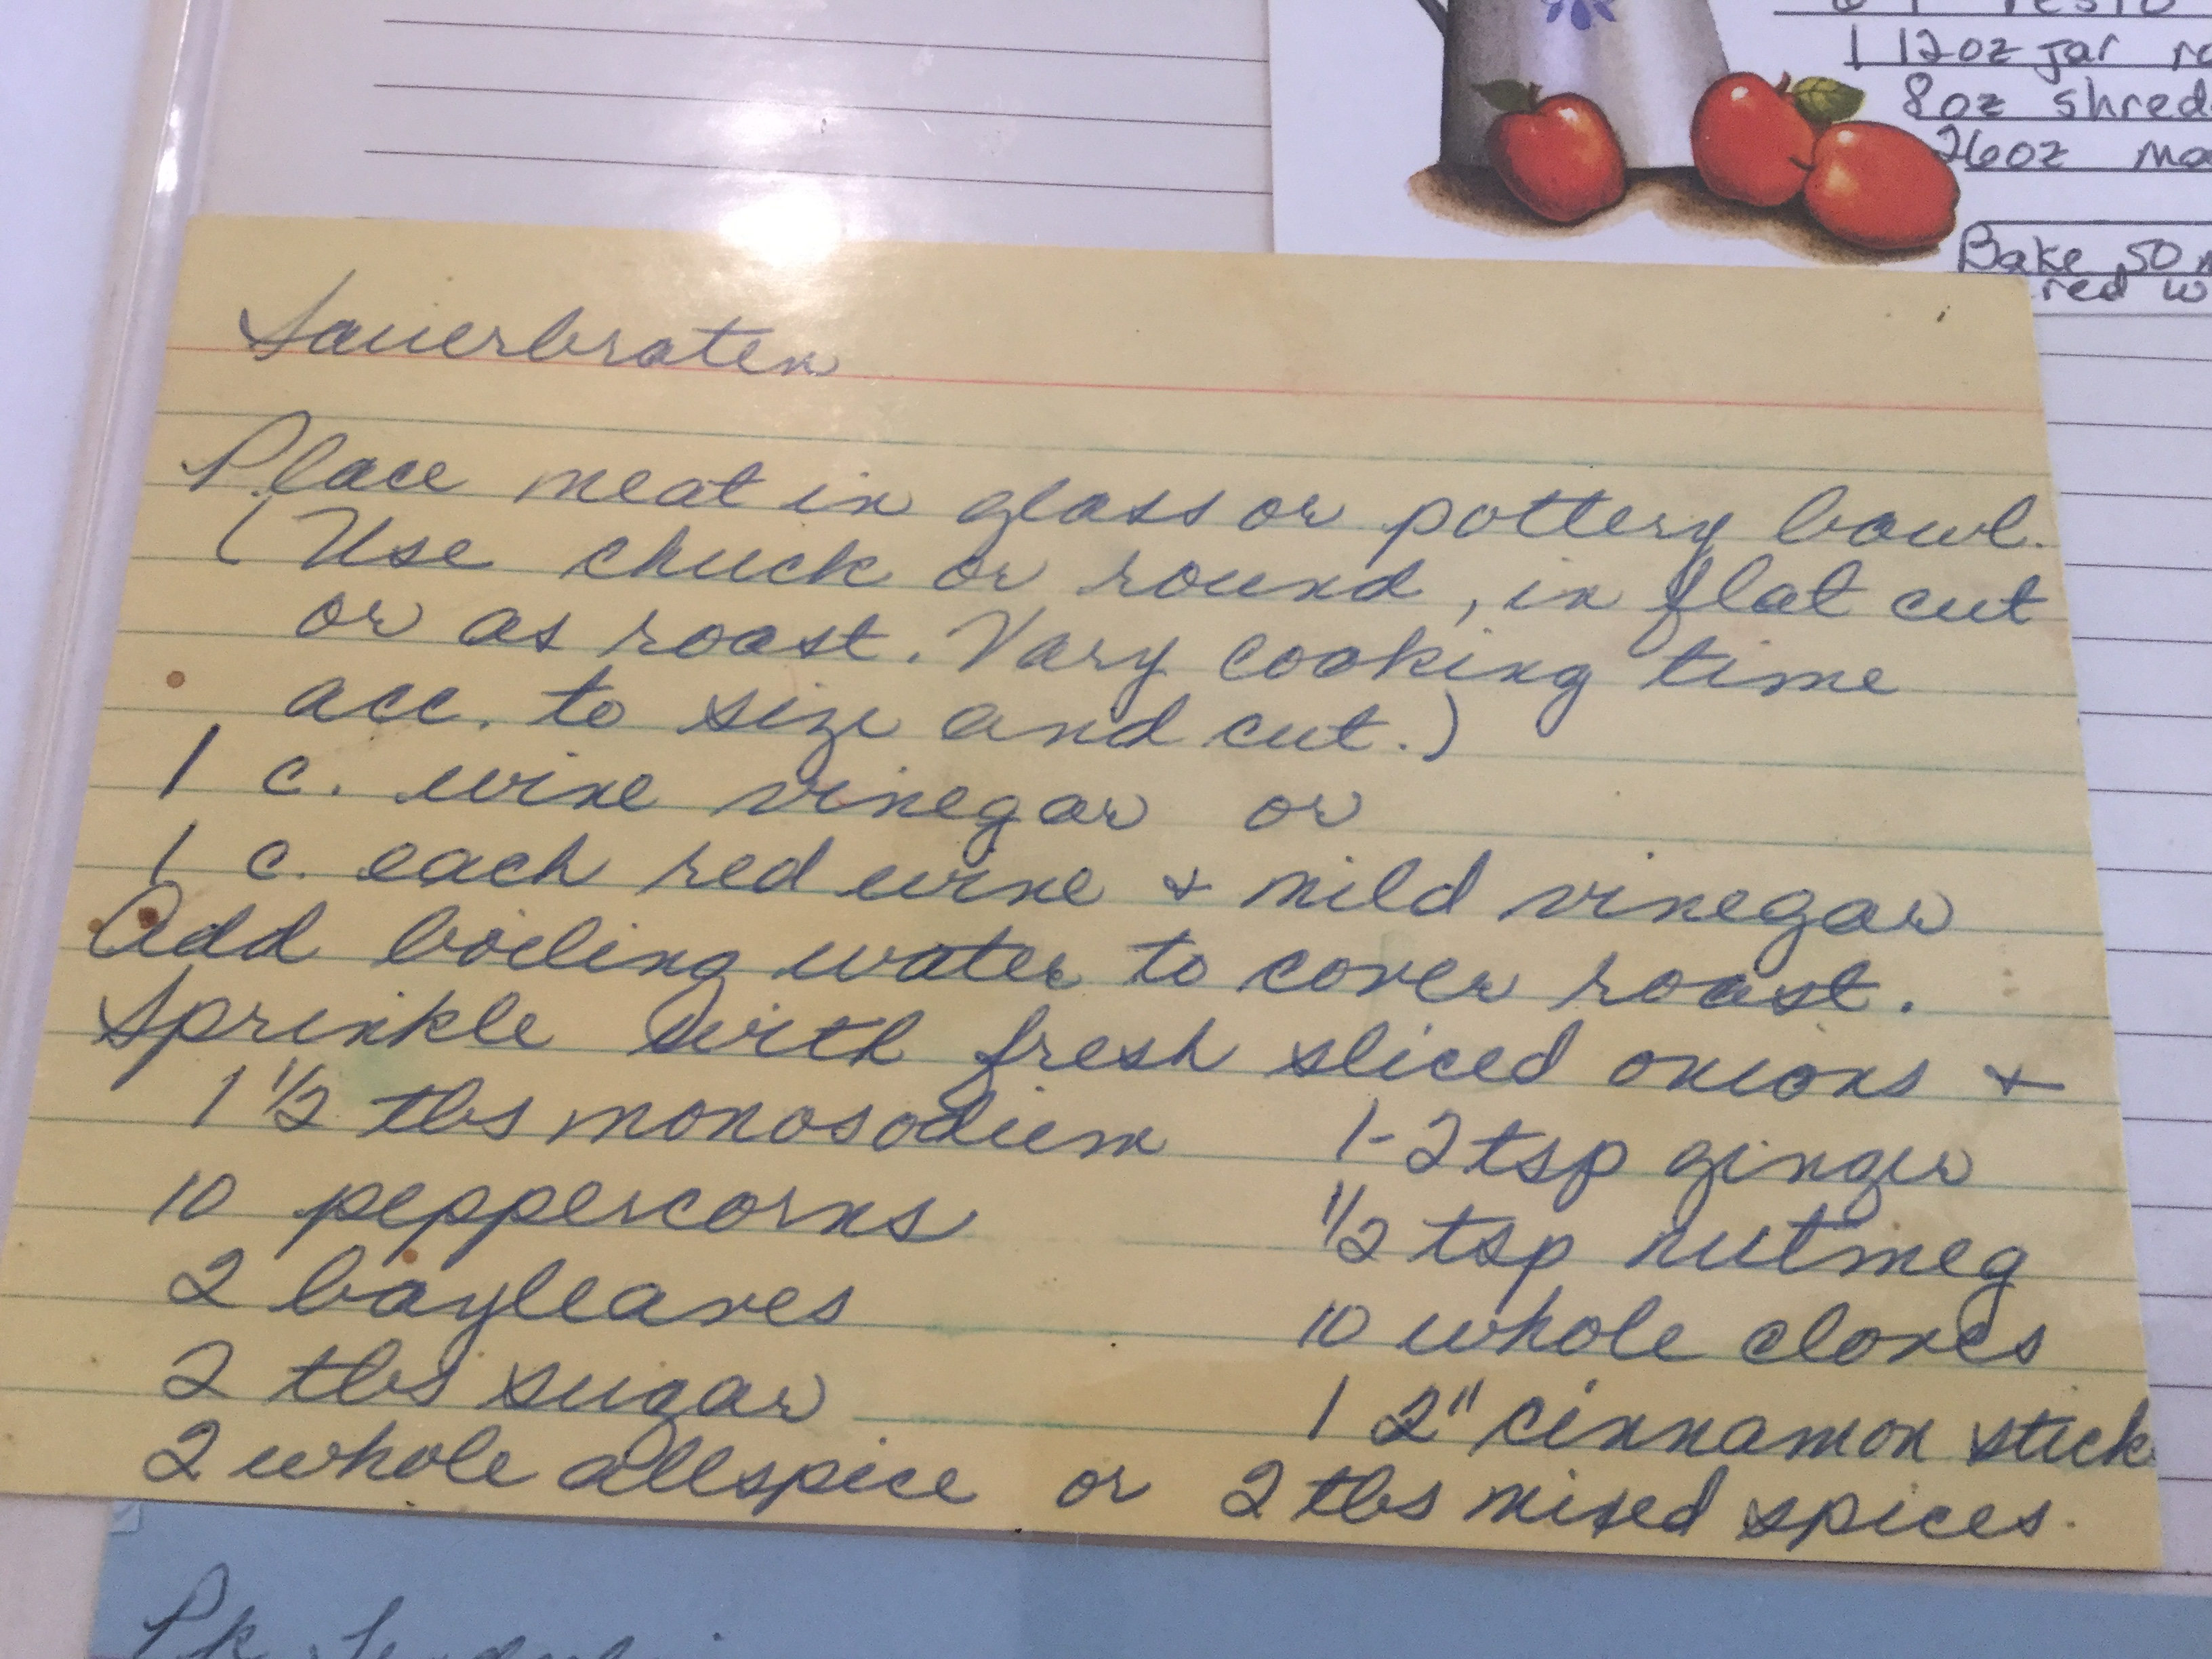 1 12oz jar
8oz
26oz
Bake 50
red
Sauerbraten
Place meat in glass or pottery bowl.
(Use chuck or round, in flat cut
or as roast. Vary cooking time
acc. to size and cut.)
1 c. wine vinegar or
1 c. each red wine + mild vinegar
Add boiling water to cover roast.
Sprinkle with fresh sliced onions +
1 1/2 tbs monosodium 1-2 tsp ginger
10 peppercorns 1/2 tsp nutmeg
2 bayleaves 10 whole cloves
2 tbs sugar 1 2" cinnamon stick
2 whole allspice or 2 tbs mixed spices.
Pk